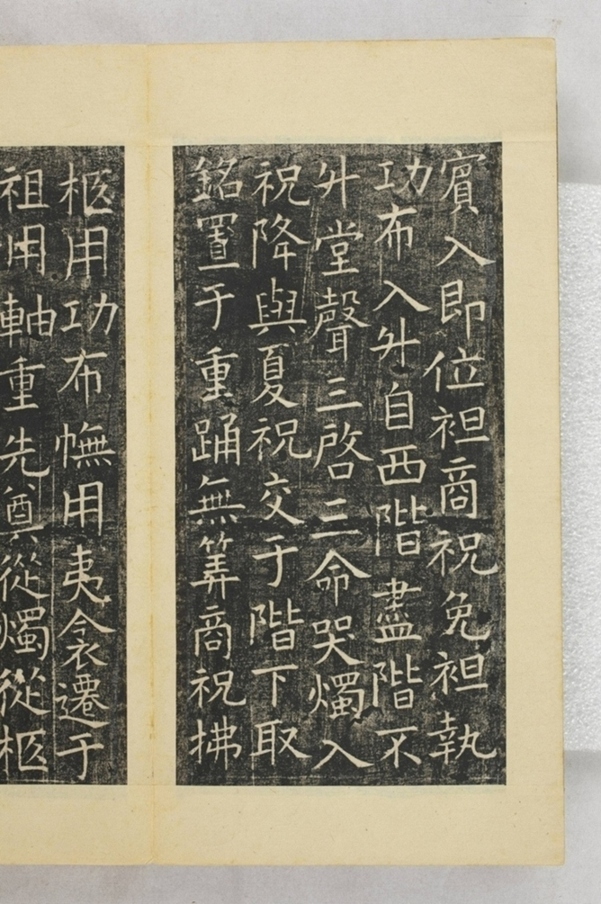 賓入即位袒商祝免袒執
功布入升自西階盡階不
升堂聲三啓三命哭燭入
祝降與夏祝交于階下取
銘置于重踊無筭商祝拂
柩用功布幠用夷衾遷于
祖用軸重先奠從燭從柩